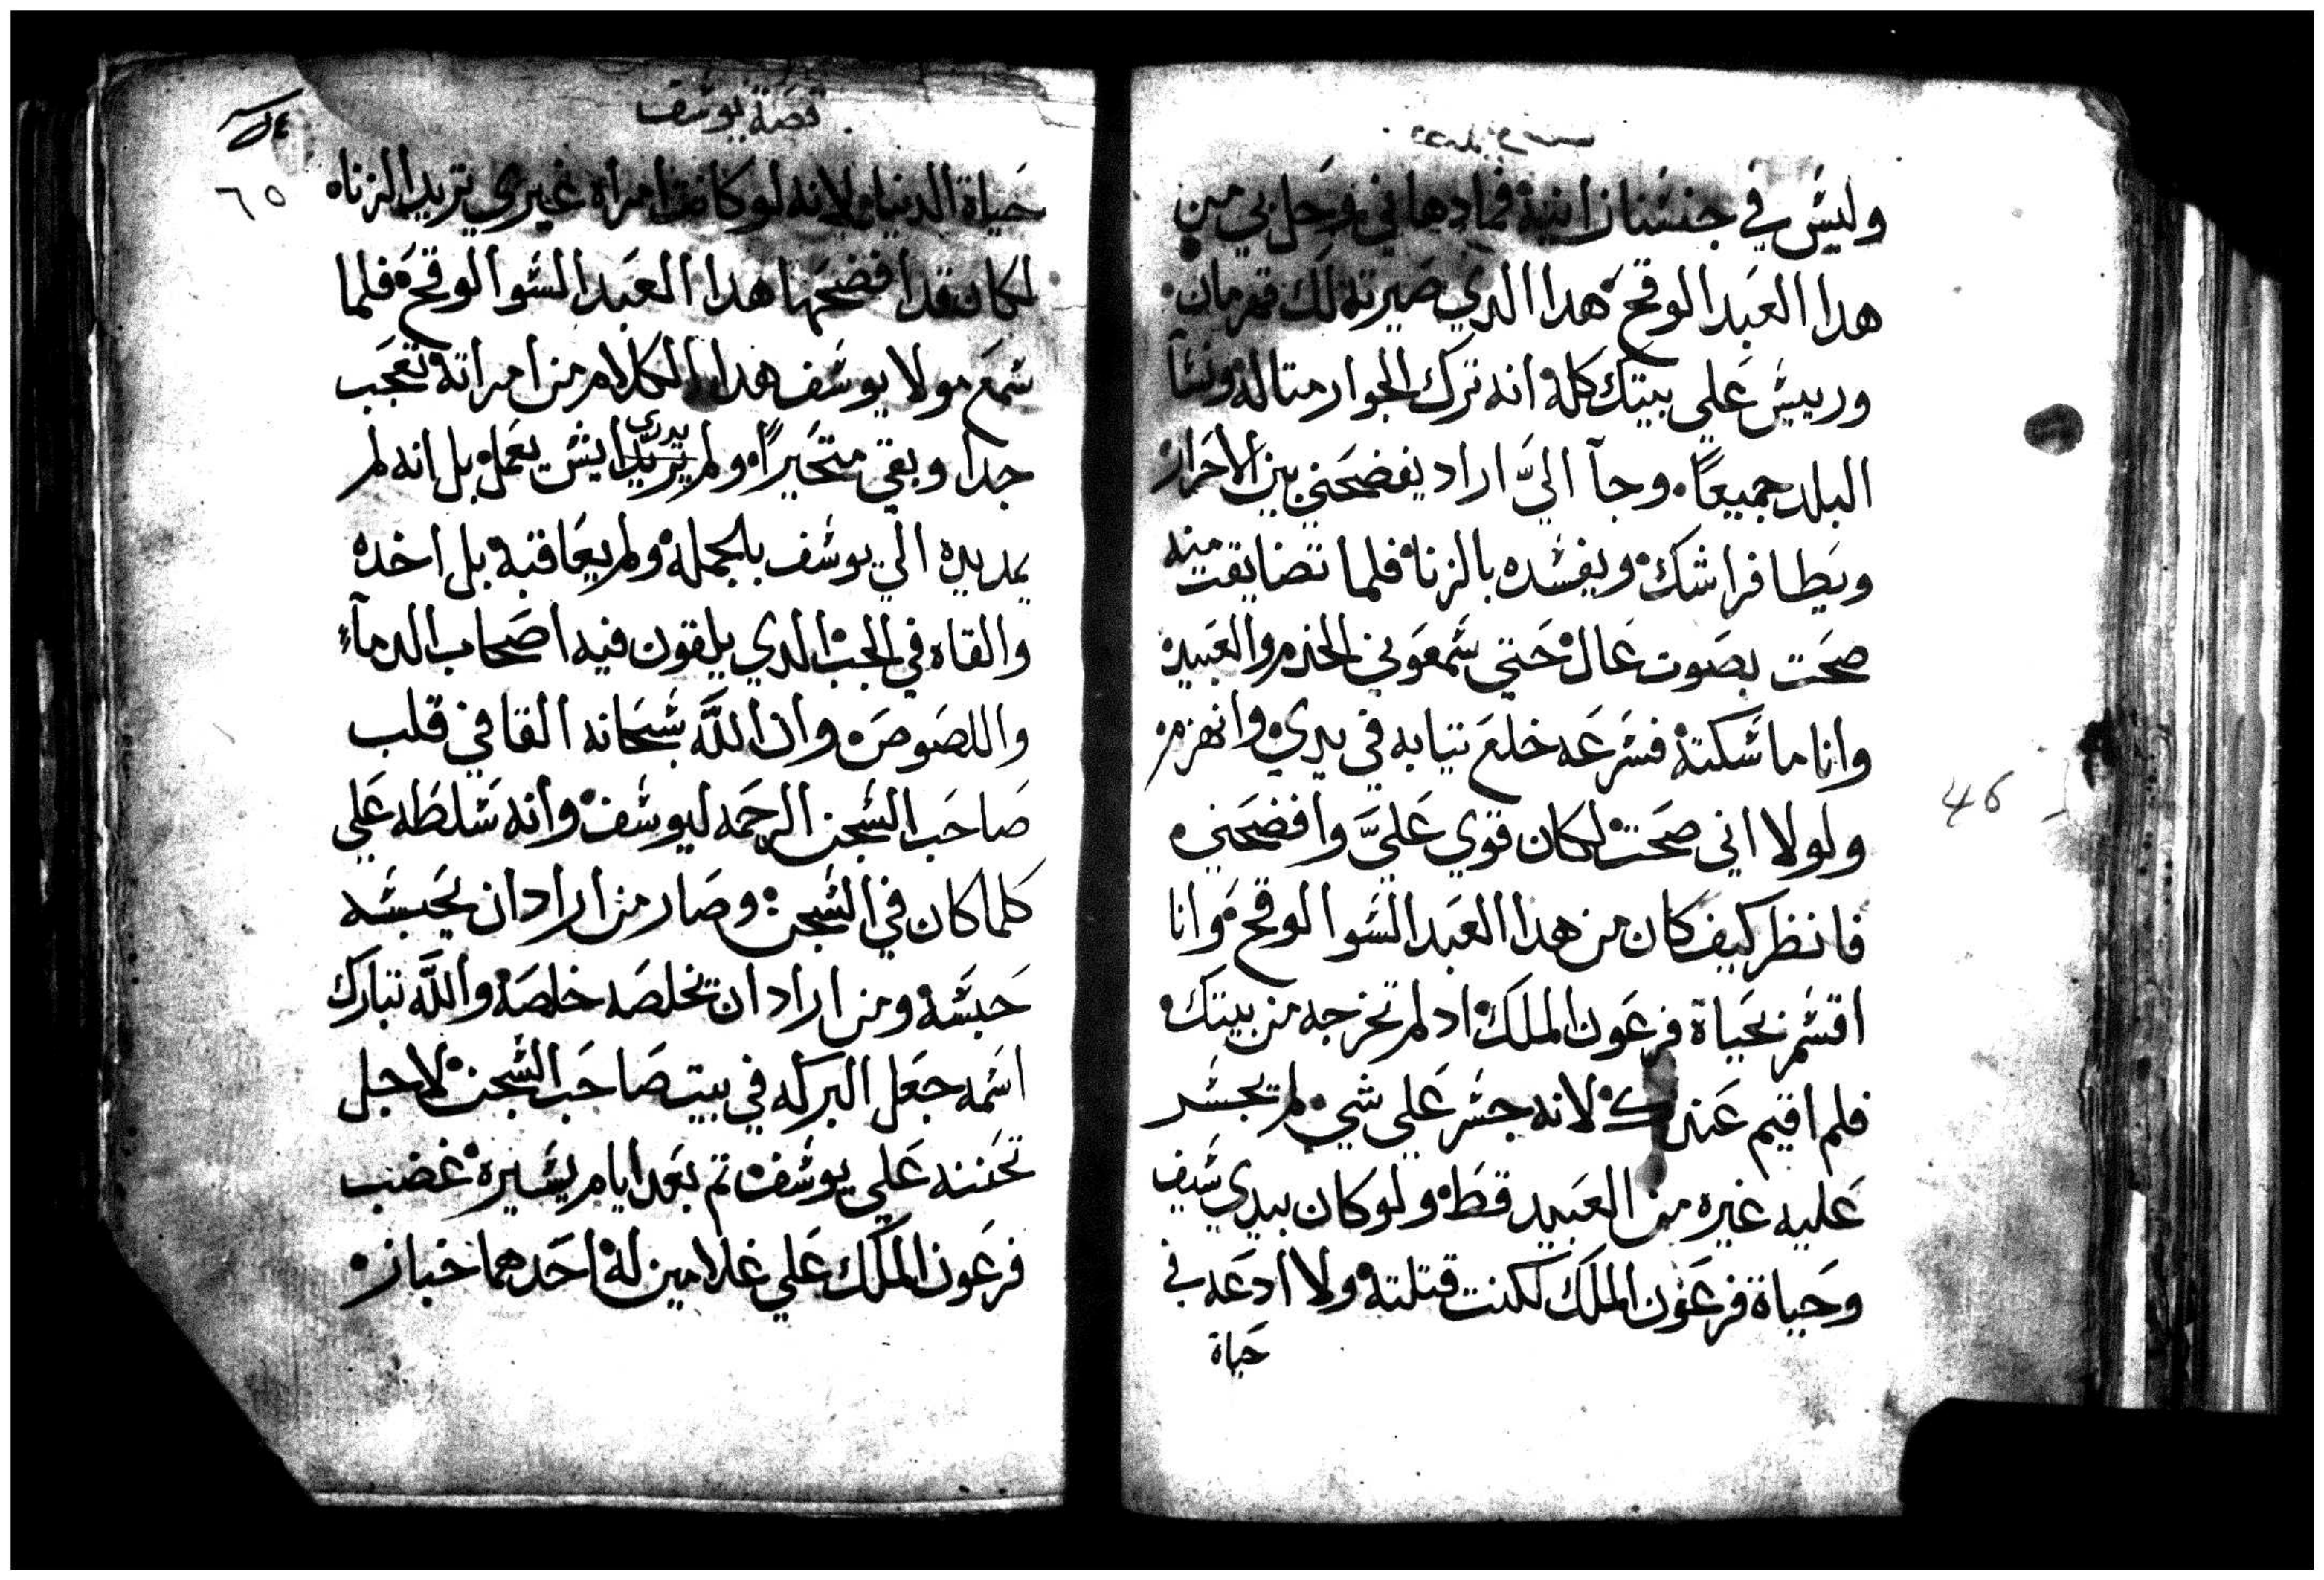 وليس في جنسنا زانية فمادهاني وحل بي من
هدا العبد الوقح هدا الدي صيرته لك قهرمان
ورييس علي بيتك كله انه ترك الجوار متاله ونسآ
البلد جميعاً وجآ اليَّ اراد يفضحني بين الاحرار
ويطا فراشك ويفسده بالزناه فلما تضايقت منه
صحت بصوت عال حتي سمعوني الخدم والعبيد
وانا ماسكته فسرعه خلع تيابه في يدي وانهزم
ولولا اني صحت لكان قوي عليَّ وافضحني
فانظر كيف كان من هدا العبد السوا الوقح وانا
اقسم بحياة فرعون الملك اد لم تخرجه من بيتك
فلم اقيم عندك لانه جسر علي شي لم يجسر
عليه غيره من العبيد قط ولو كان بيدي سيف
وحياة فرعون الملك لكنت قتلته ولا ادعه في
حياة
قصة يوسف
٦٥
حياة الدنيا لانه لو كانت امراه غيري تريد الزناه
لكان قد افضحها هدا العبد السوا الوقح فلما
سمع مولا يوسف هدا الكلام من امراته تعجب
جدا وبقي متحيراً ولم يريد يدري ايش يعمل بل انه لم
يمد يده الي يوسف بالجمله ولم يعاقبه بل اخده
والقاه في الجب الدي يلقون فيه اصحاب الدمآء
واللصوص وان اللَّه سبحانه القا في قلب
صاحب السجن الرحمه ليوسف وانه سلطه علي
كلما كان في السجن وصار من اراد ان يحبسه
حبسه ومن اراد ان يخلصه خلصه واللَّه تبارك
اسمه جعل البركه في بيت صاحب السجن لاجل
تحننه علي يوسف تم بعد ايام يسيره غضب
فرعون الملك علي غلامين له احدهما خباز
46